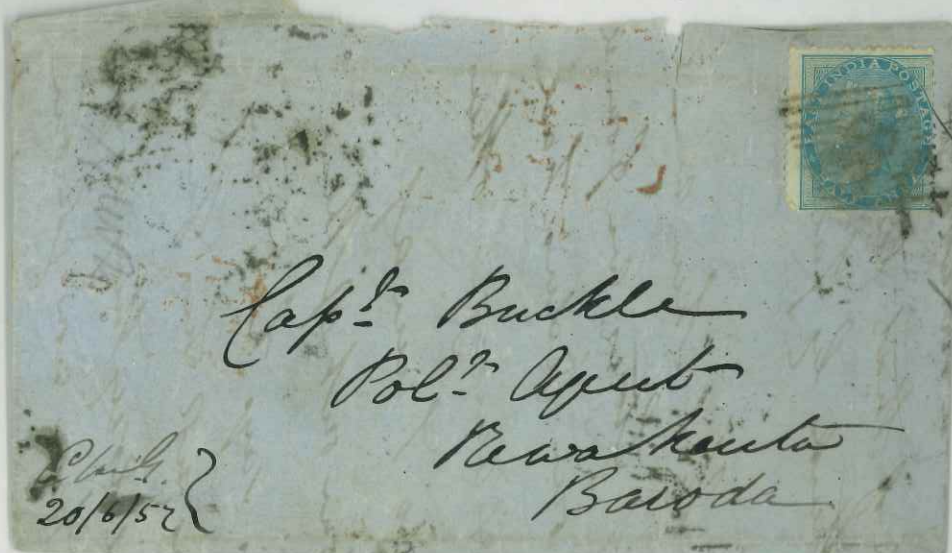 EAST INDIA POSTAGE
Capt.
Buckle
Poll. Agent
Rewa Kanta
Baroda
20/6/57